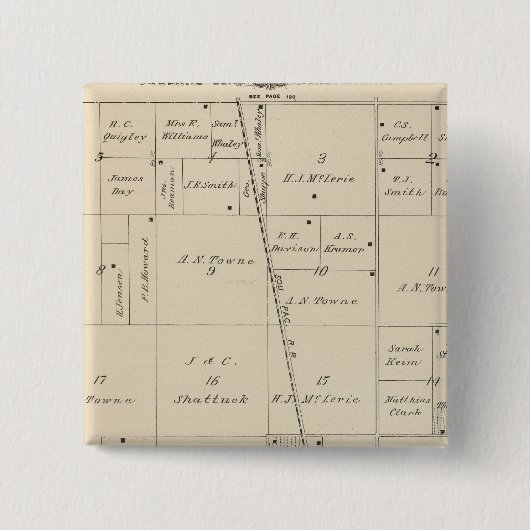 SEE PAGE 120
R.C.
Quigley
Mrs E.
Williams
Saml
Whaley
Saml Whaley
C.S.
Campbell
5
4
3
2
James
Day
Jno.
Beaman
J.R. Smith
Geo
Sharpe
H.J. McLerie
P.J.
Smith
E.H.
Davison
A.S.
Kramer
8
H. Jensen
F.B. Howard
A.N. Towne
9
10
11
A.N. Towne
A.N. Tow
SOU. PAC. R.R.
Sarah
Keim
17
Towne
J & C.
16
Shattuck
15
H.J. McLerie
14
Matthias
Clark